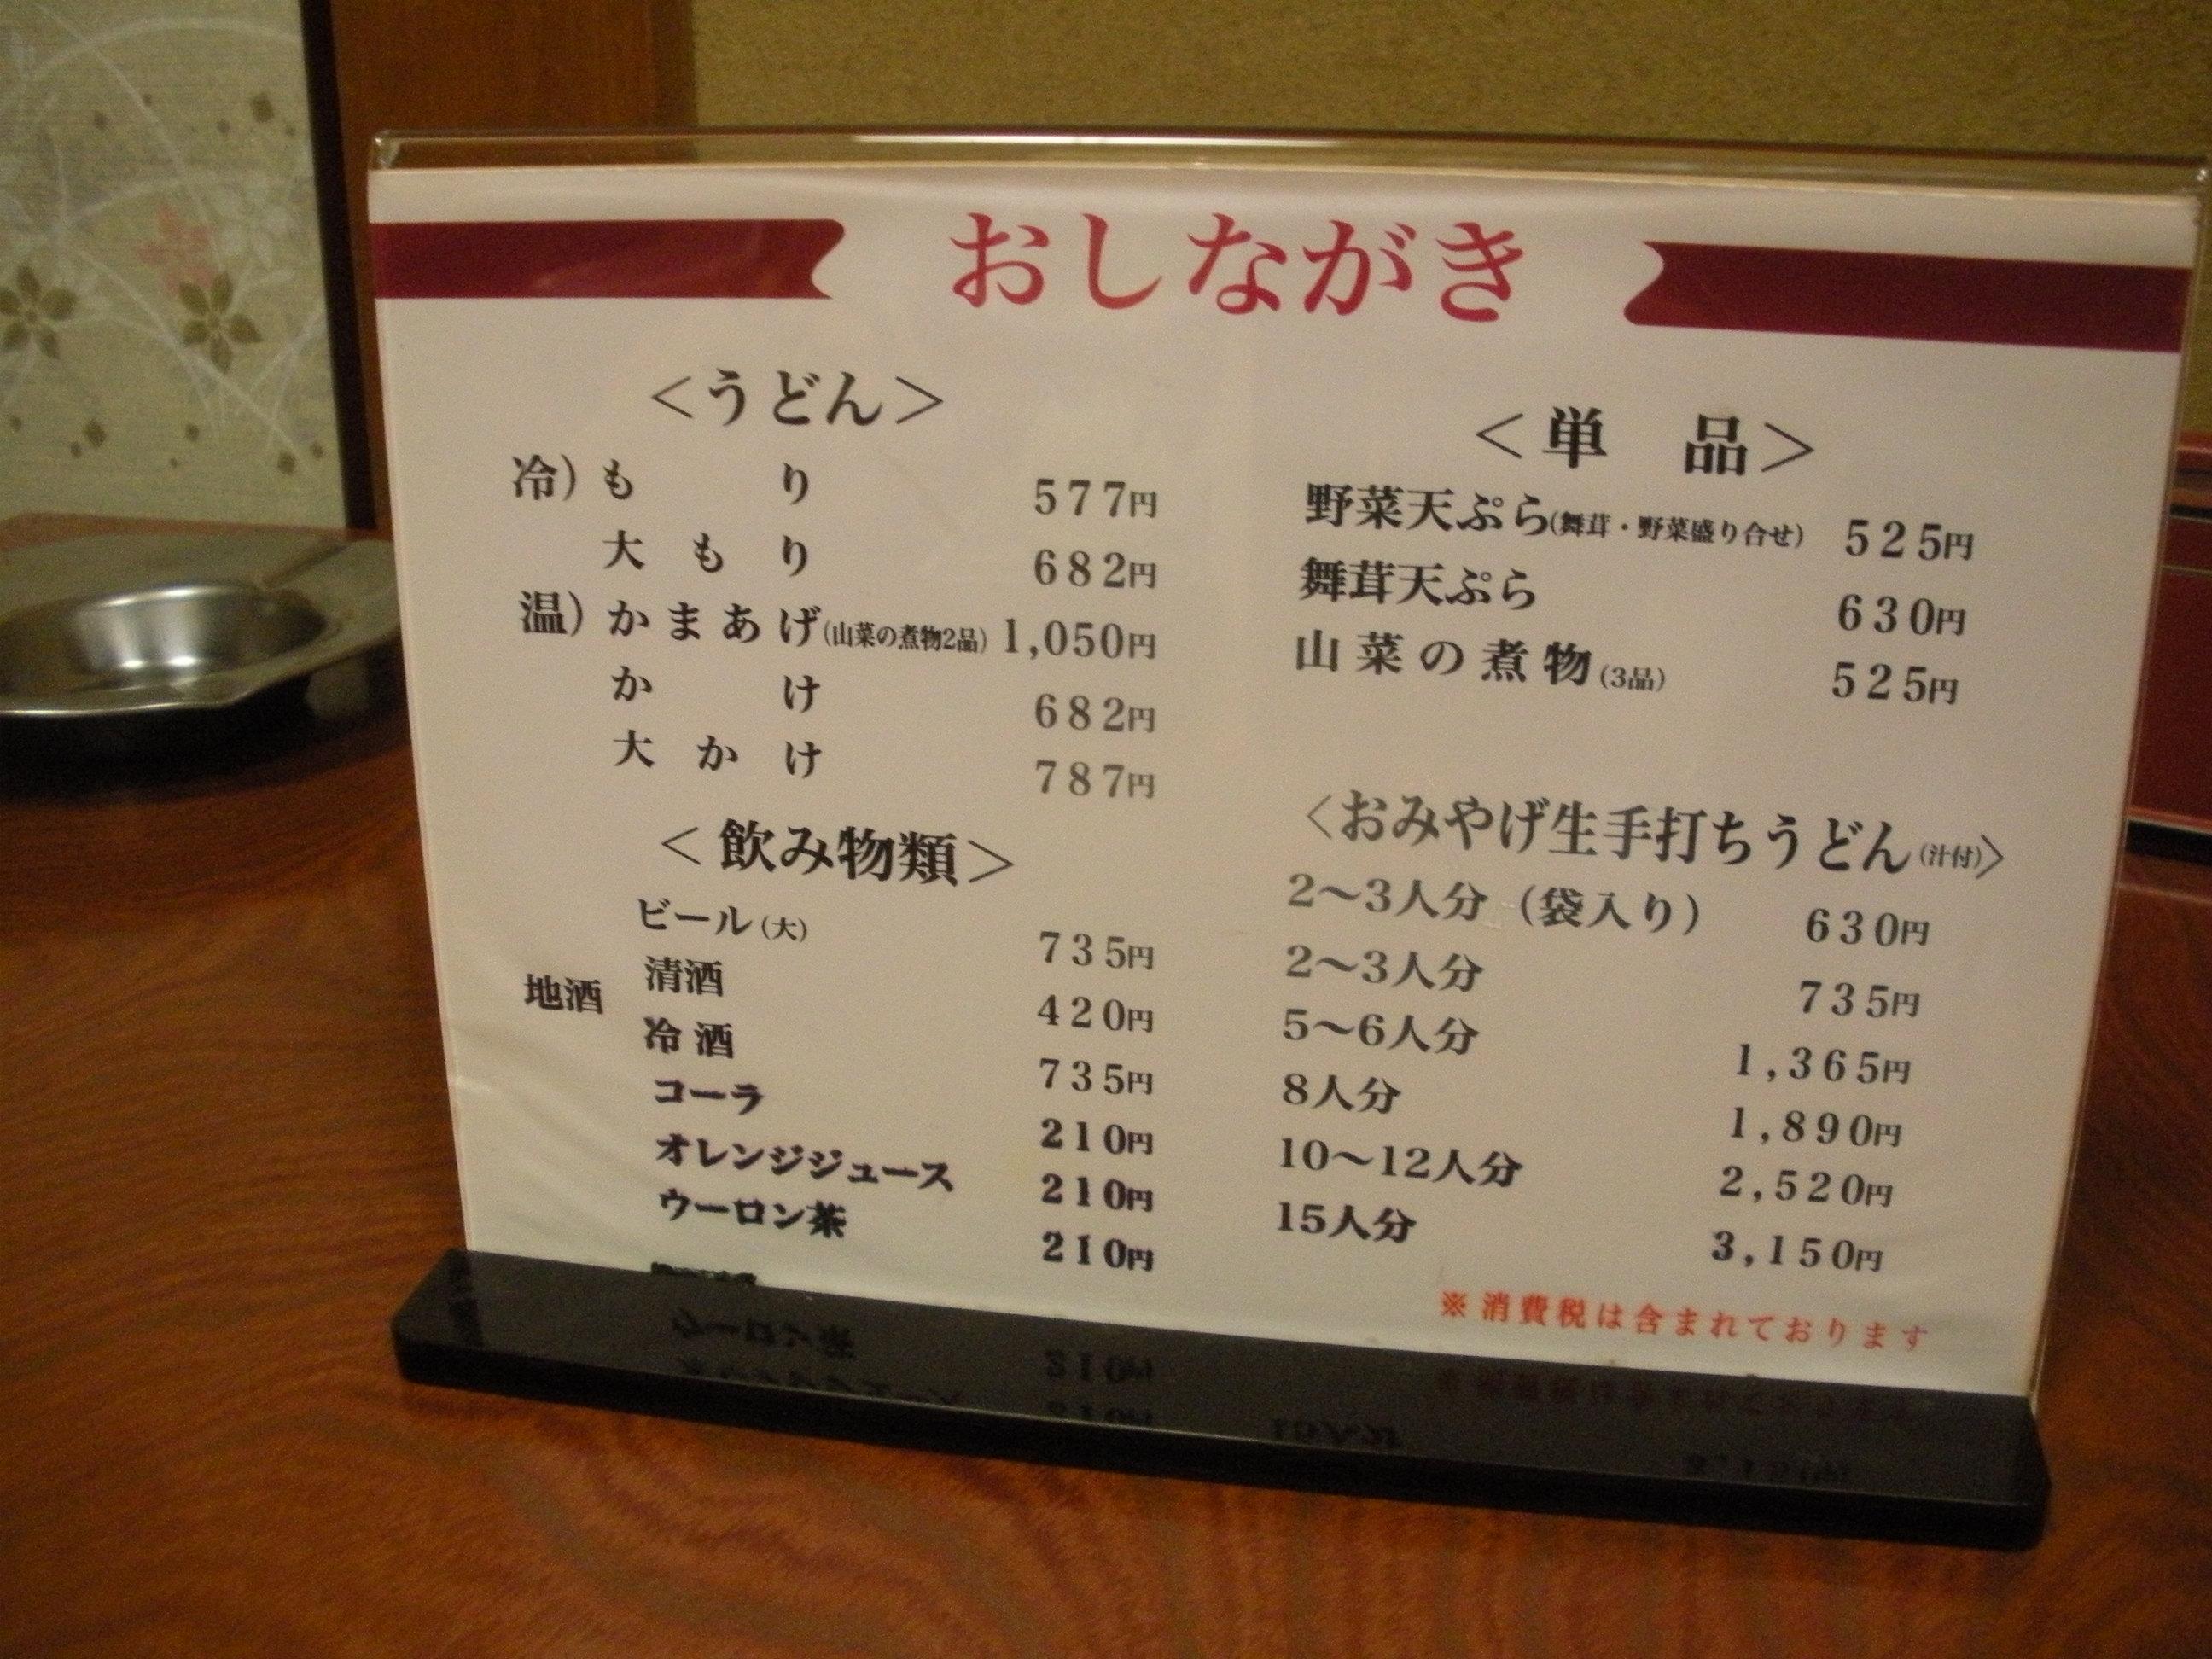 おしながき
<うどん>
冷)もり 577円
大もり 682円
温)かまあげ(山菜の煮物2品) 1,050円
かけ 682円
大かけ 787円
<飲み物類>
ビール(大) 735円
地酒 清酒 420円
冷酒 735円
コーラ 210円
オレンジジュース 210円
ウーロン茶 210円
<単品>
野菜天ぷら(舞茸・野菜盛り合せ) 525円
舞茸天ぷら 630円
山菜の煮物(3品) 525円
<おみやげ生手打ちうどん(汁付)>
2〜3人分(袋入り) 630円
2〜3人分 735円
5〜6人分 1,365円
8人分 1,890円
10〜12人分 2,520円
15人分 3,150円
※消費税は含まれております